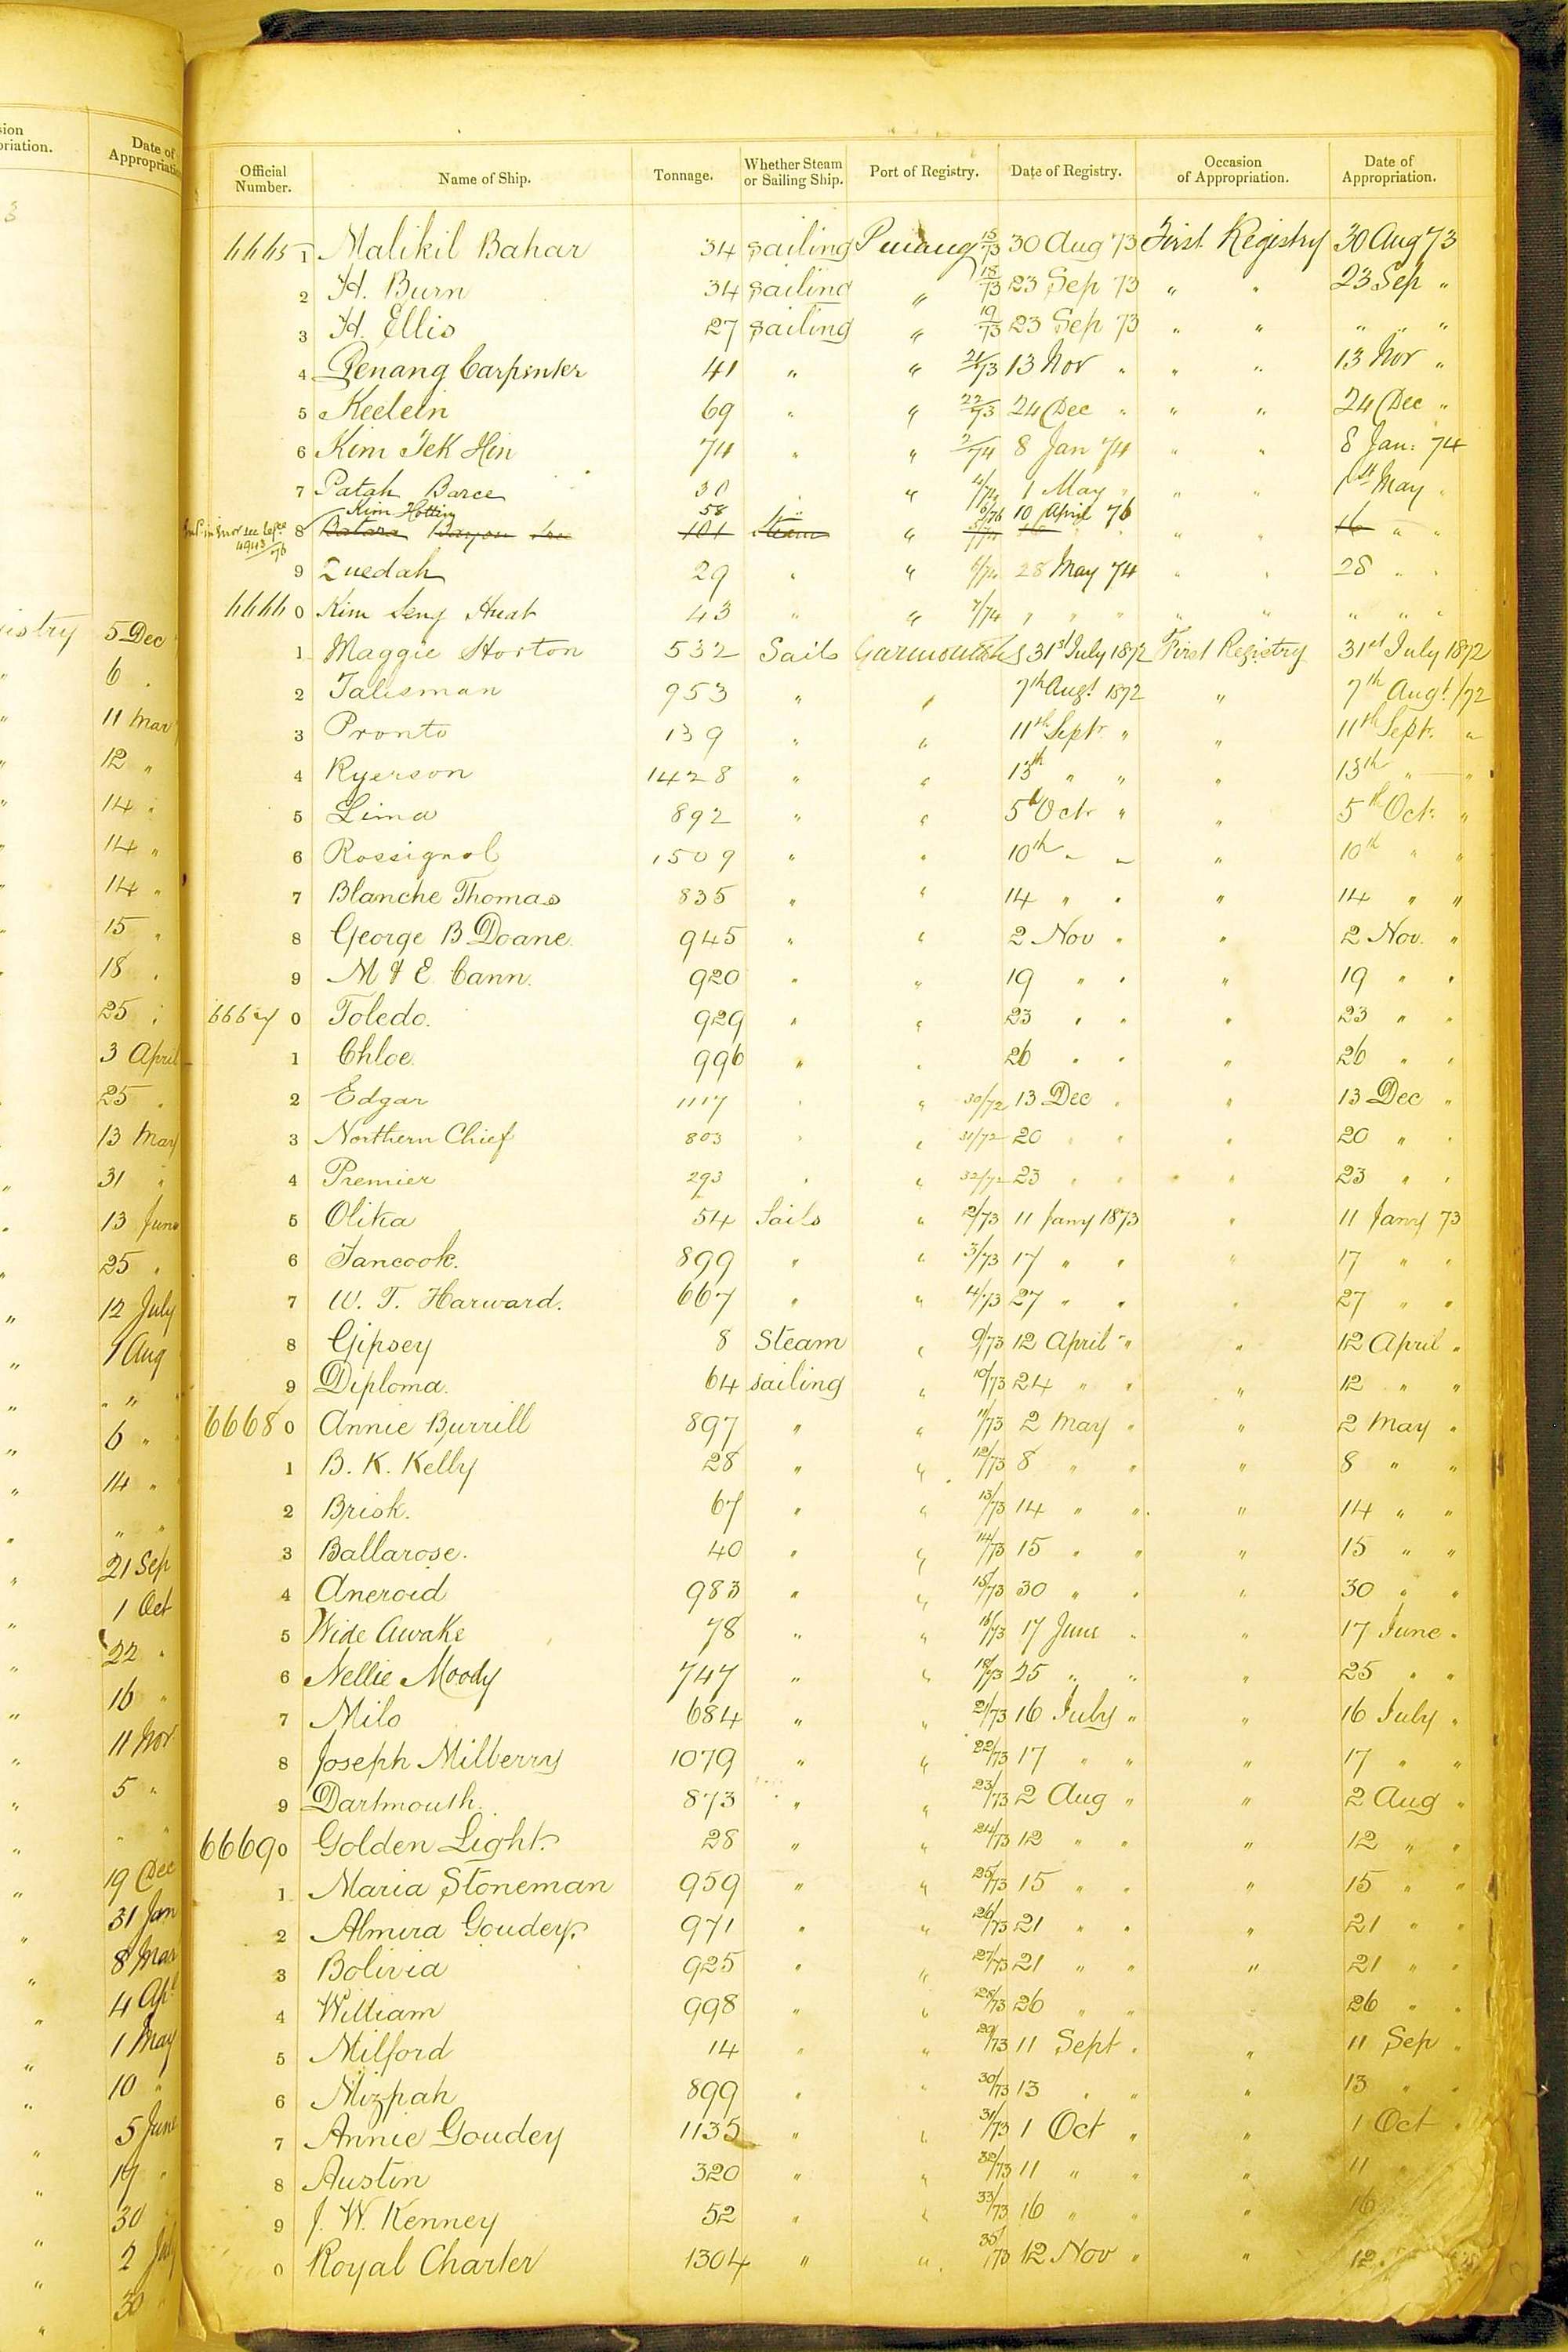 Official Number. Name of Ship. Tonnage. Whether Steam or Sailing Ship. Port of Registry. Date of Registry. Occasion of Appropriation. Date of Appropriation.
6665 1 Malikil Bahar 34 sailing Penang 15/73 30 Aug 73 First Registry 30 Aug 73
2 H. Burn 34 sailing " 18/73 23 Sep 73 " " 23 Sep "
3 H. Ellis 27 sailing " 19/73 23 Sep 73 " " " " "
4 Penang Carpenter 41 " " 21/73 13 Nov " " " 13 Nov "
5 Keelein 69 " " 22/73 24 Dec " " " 24 Dec "
6 Kim Tek Hin 74 " " 2/74 8 Jan 74 " " 8 Jan: 74
7 Patah Barce 30 " " 4/74 1 May " " " 1st May "
Kim Hottin 58 " 6/76 10 April 76
8 101 Steam " " " 16 " "
9 Quedah 29 " " 6/74 28 May 74 " " 28 " "
6666 0 Kim Seng Huat 43 " " 7/74 " " " " " " " "
1 Maggie Horton 532 Sails Yarmouth NS 31st July 1872 First Registry 31st July 1872
2 Talisman 953 " " 7th Augt 1872 " 7th Augt /72
3 Pronto 139 " " 11th Sept. " " 11th Sept. "
4 Ryerson 1428 " " 13th " " " 13th " "
5 Lima 892 " " 5th Oct " " 5th Oct. "
6 Rossignol 1509 " " 10th " " " 10th " "
7 Blanche Thomas 835 " " 14 " " " 14 " "
8 George B Doane. 945 " " 2 Nov " " 2 Nov. "
9 M & E. Cann. 920 " " 19 " " " 19 " "
6667 0 Toledo. 929 " " 23 " " " 23 " "
1 Chloe. 996 " " 26 " " " 26 " "
2 Edgar 1117 " " 30/72 13 Dec " " 13 Dec "
3 Northern Chief 803 " " 31/72 20 " " " 20 " "
4 Premier 293 " " 32/72 23 " " " 23 " "
5 Olika 54 Sails " 2/73 11 Jany 1873 " 11 Jany 73
6 Tancook. 899 " " 3/73 17 " " " 17 " "
7 W. T. Harward. 667 " " 4/73 27 " " " 27 " "
8 Gipsey 8 Steam " 9/73 12 April " " 12 April "
9 Diploma. 64 sailing " 10/73 24 " " " 12 " "
6668 0 Annie Burrill 897 " " 11/73 2 May " " 2 May "
1 B. K. Kelly 28 " " 12/73 8 " " " 8 " "
2 Brisk. 67 " " 13/73 14 " " " 14 " "
3 Ballarose. 40 " " 14/73 15 " " " 15 " "
4 Aneroid 983 " " 15/73 30 " " " 30 " "
5 Wide Awake 78 " " 16/73 17 June " " 17 June "
6 Nellie Moody 747 " " 18/73 25 " " " 25 " "
7 Milo 684 " " 21/73 16 July " " 16 July "
8 Joseph Milberry 1079 " " 22/73 17 " " " 17 " "
9 Dartmouth. 873 " " 23/73 2 Aug " " 2 Aug "
6669 0 Golden Light. 28 " " 24/73 12 " " " 12 " "
1 Maria Stoneman 959 " " 25/73 15 " " " 15 " "
2 Almira Goudey. 971 " " 26/73 21 " " " 21 " "
3 Bolivia 925 " " 27/73 21 " " " 21 " "
4 William 998 " " 28/73 26 " " 26 " "
5 Milford 14 " " 29/73 11 Sept " " 11 Sep "
6 Mizpah 899 " " 30/73 13 " " " 13 " "
7 Annie Goudey 1135 " " 31/73 1 Oct " " 1 Oct "
8 Austin 320 " " 32/73 11 " " " 11
9 J. W. Kenney 52 " " 33/73 16 " " " 16
0 Royal Charter 1304 " " 35/73 12 Nov " " 12
Date of Appropriation
5 Dec
6 "
11 Mar
12 "
14 "
14 "
14 "
15 "
18 "
25 "
3 April
25 "
13 May
31 "
13 June
25 "
12 July
1 Aug
" "
6 "
14 "
" "
21 Sep
1 Oct
22 "
16 "
11 Nov
5 "
" "
19 Dec
31 Jan
8 Mar
4 Apl
1 May
10 "
5 June
17 "
30 "
2 July
30 "